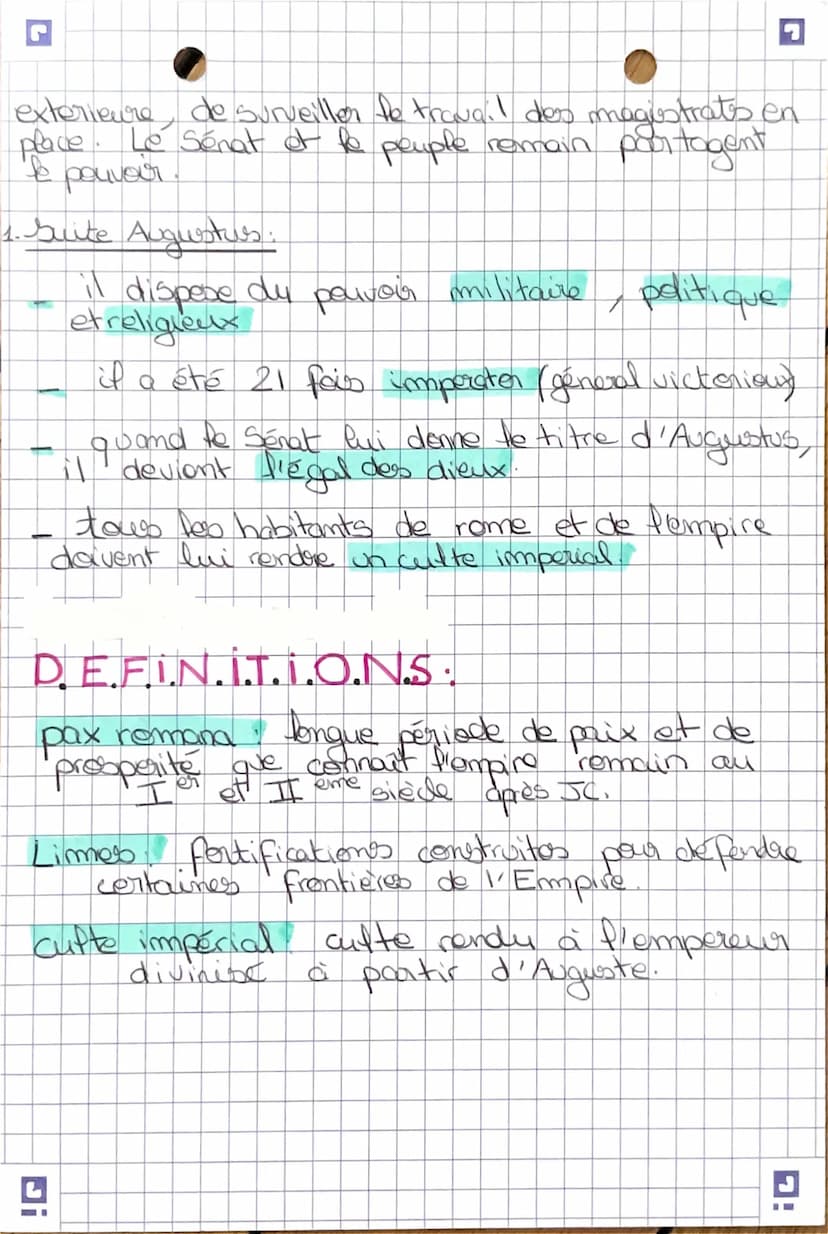 exterieure, de surveiller le travail des magistrats en
place. Le Sénat et le peuple romain partagent
le pouvoir.
1. Suite Augustus :
- il dispose du pouvoir militaire, politique
et religieux
- il a été 21 fois imperator (général victorieux)
- quand le Sénat lui donne le titre d'Augustus,
il devient l'égal des dieux.
- tous les habitants de rome et de l'empire
doivent lui rendre un culte imperial.
D.E.F.I.N.I.T.I.O.N.S :
pax romana : longue période de paix et de
prosperité que connaît l'empire romain au
Ier et II ème siècle après JC.
Limes : fortifications construites pour défendre
certaines frontières de l'Empire.
culte impérial : culte rendu à l'empereur
divinisé à partir d'Auguste.